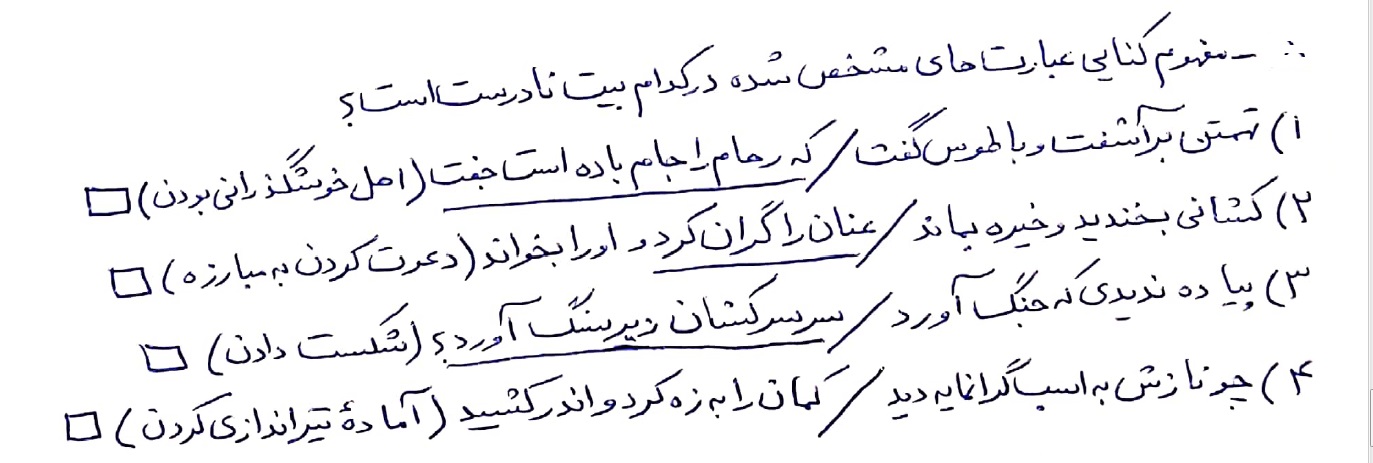 ∴ - مفهوم کنایی عبارت‌های مشخص شده در کدام بیت نادرست است؟
۱) تهمتن برآشفت و با طوس گفت / که رهام را جام باده است جفت (اهل خوشگذرانی بودن) □
۲) کشانی بخندید و خیره بماند / عنان را گران کرد و او را بخواند (دعوت کردن به مبارزه) □
۳) پیاده ندیدی که جنگ آورد / سر سرکشان زیر سنگ آورد؟ (شکست دادن) □
۴) چو نازش به اسب گرانمایه دید / کمان را به زه کرد و اندر کشید (آمادهٔ تیراندازی کردن) □